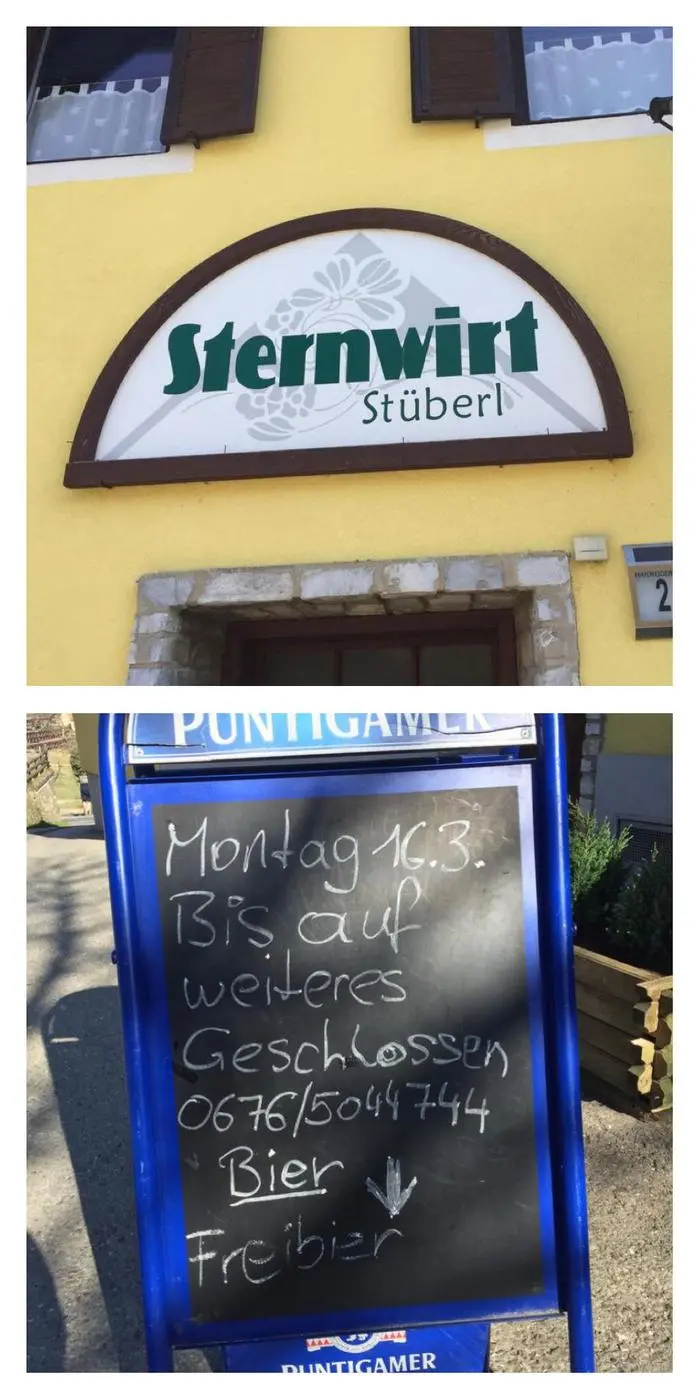 Sternwirt
Stüberl
2
PUNTIGAMER
Montag 16.3.
Bis auf
weiteres
Geschlossen
0676/5044744
Bier
Freibier
PUNTIGAMER